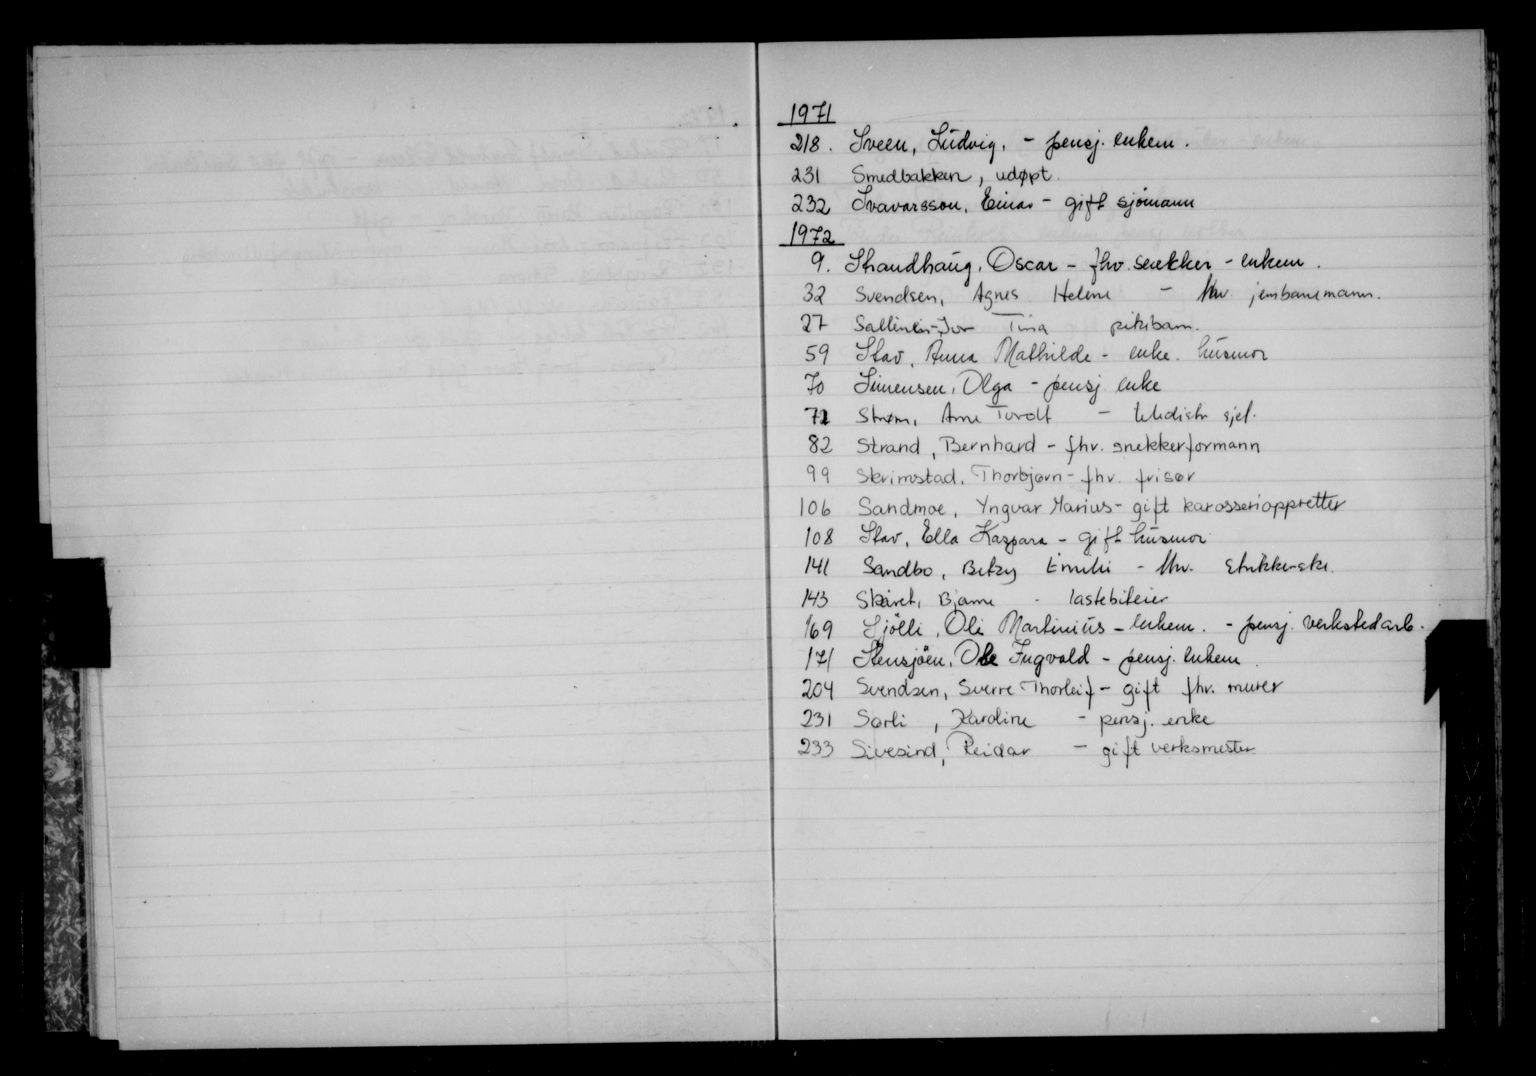 1971
218. Sveen, Ludvig, - pensj. enkem.
231 Smedbakken, udøpt.
232 Svavarsson, Einar - gift sjömann
1972
9. Strandhaug, Oscar - fhv. snekker - enkem.
32 Svendsen, Agnes Helene - fhv jernbanemann.
27 Tina pikebarn.
59 Stav, Anna Mathilde - enke. husmor
70 Simensen, Olga - pensj enke
72 Strøm, Arne Toralf - sjef.
82 Strand, Bernhard - fhv. snekkerformann
99 Skrimstad, Thorbjørn - fhv. frisør
106 Sandmoe, Yngvar Marius - gift karosserioppretter
108 Stav, Ella Kaspara - gift husmor
141 Sandbo, Betzy Emilie - fhv. strikkerske.
143 Skåret, Bjarne - lastebileier
169 Sjölli, Ole Martinius - enkem. - pensj. verkstedarb.
171 Stensjöen, Ole Ingvald - pensj. enkem.
204 Svendsen, Sverre Thorleif - gift fhv. murer
231 Sørli, Karoline - pensj. enke
233 Sivesind, Reidar - gift verksmester